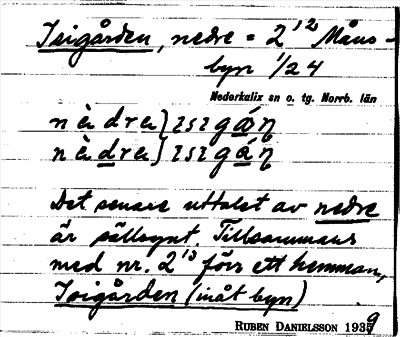 Isigården, nedre = 2¹² Måns-
byn 1/24
Nederkalix sn o. tg. Norrb. län
Det senare uttalet av nedre
är sällsynt. Tillsammans
med nr. 2¹³ förr ett hemman,
Isigården (inåt byn)
RUBEN DANIELSSON 1939